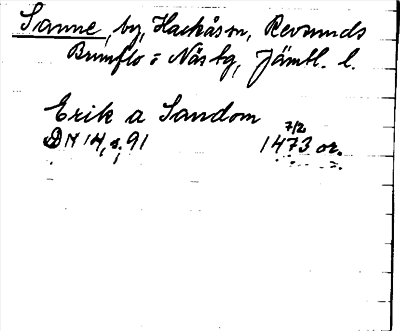 Sanne, by, Hackås sn, Revsunds
Brunflo o Näs tg, Jämtl. l.
Erik a Sandom 7/2
DN 14, s. 91 1473 or.